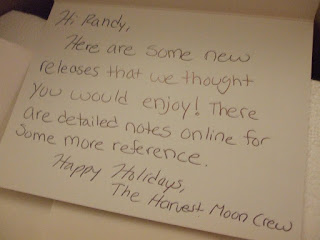 Hi Randy,
Here are some new
releases that we thought
you would enjoy! There
are detailed notes online for
some more reference.
Happy Holidays,
The Harvest Moon Crew